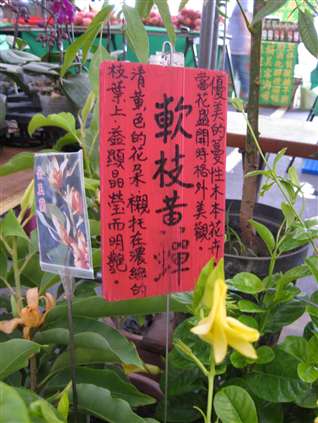 優美的蔓性木本花卉
當花盛開時格外美觀。
軟枝黃蟬
清黃色的花朵襯托在濃綠的
枝葉上益顯晶瑩而明艷。